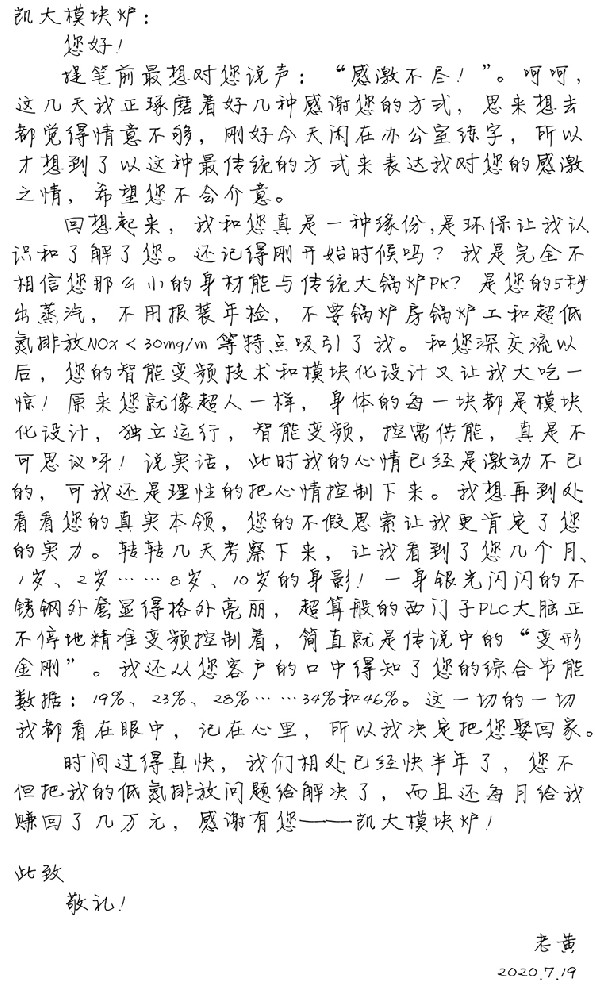 凯大模块炉：
您好！
提笔前最想对您说声：“感激不尽！”。呵呵，
这几天我正琢磨着好几种感谢您的方式，思来想去
都觉得情意不够，刚好今天闲在办公室练字，所以
才想到了以这种最传统的方式来表达我对您的感激
之情，希望您不会介意。
回想起来，我和您真是一种缘份，是环保让我认
识和了解了您。还记得刚开始时候吗？我是完全不
相信您那么小的身材能与传统大锅炉PK？是您的5秒
出蒸汽，不用报装年检，不要锅炉房锅炉工和超低
氮排放NOx＜30mg/m等特点吸引了我。和您深交流以
后，您的智能变频技术和模块化设计又让我大吃一
惊！原来您就像超人一样，身体的每一块都是模块
化设计，独立运行，智能变频，按需供能，真是不
可思议呀！说实话，此时我的心情已经是激动不已
的，可我还是理性的把心情控制下来。我想再到处
看看您的真实本领，您的不假思索让我更肯定了您
的实力。转转几天考察下来，让我看到了您几个月、
1岁、2岁……8岁、10岁的身影！一身银光闪闪的不
锈钢外套显得格外亮丽，超算般的西门子PLC大脑正
不停地精准变频控制着，简直就是传说中的“变形
金刚”。我还从您客户的口中得知了您的综合节能
数据：19%、23%、28%……34%和46%。这一切的一切
我都看在眼中，记在心里，所以我决定把您娶回家。
时间过得真快，我们相处已经快半年了，您不
但把我的低氮排放问题给解决了，而且还每月给我
赚回了几万元，感谢有您——凯大模块炉！
此致
敬礼！
老黄
2020.7.19